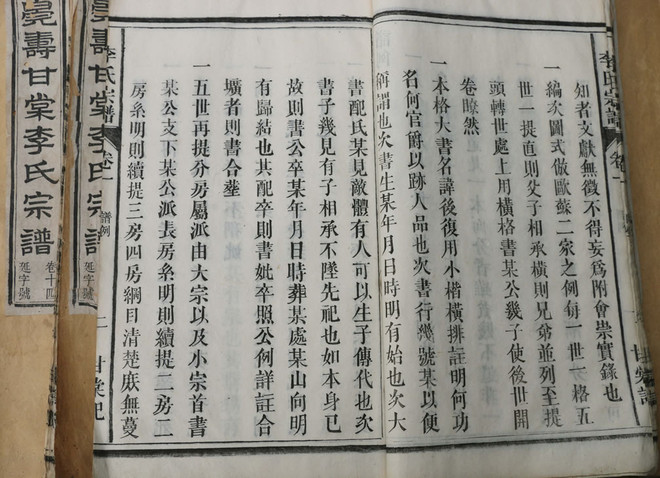 知者文獻無徵不得妄爲附會崇實錄也
一編次圖式倣歐蘇二家之例每一世一格五
世一提直則父子相承橫則兄弟並列至提
頭轉世處上用橫格書某公幾子使後世開
卷瞭然
一本格大書名諱後復用小楷橫排註明何功
名何官爵以跡人品也次書行幾號某以便
稱謂也次書生某年月日時明有始也次大
書配氏某見敵體有人可以生子傳代也次
書子幾見有子相承不墜先祀也如本身已
故則書公卒某年月日時葬某處某山向明
有歸結也其配卒則書妣卒照公例詳註合
壙者則書合塟
一五世再提分房屬派由大宗以及小宗首書
某公支下某公派表房系明則續提二房二
房系明則續提三房四房綱目清楚庶無蔓
李氏宗譜
卷一
譜例
二
甘棠記
壽甘棠李氏宗譜
延字號
壽甘棠李氏宗譜
卷十四
延字號